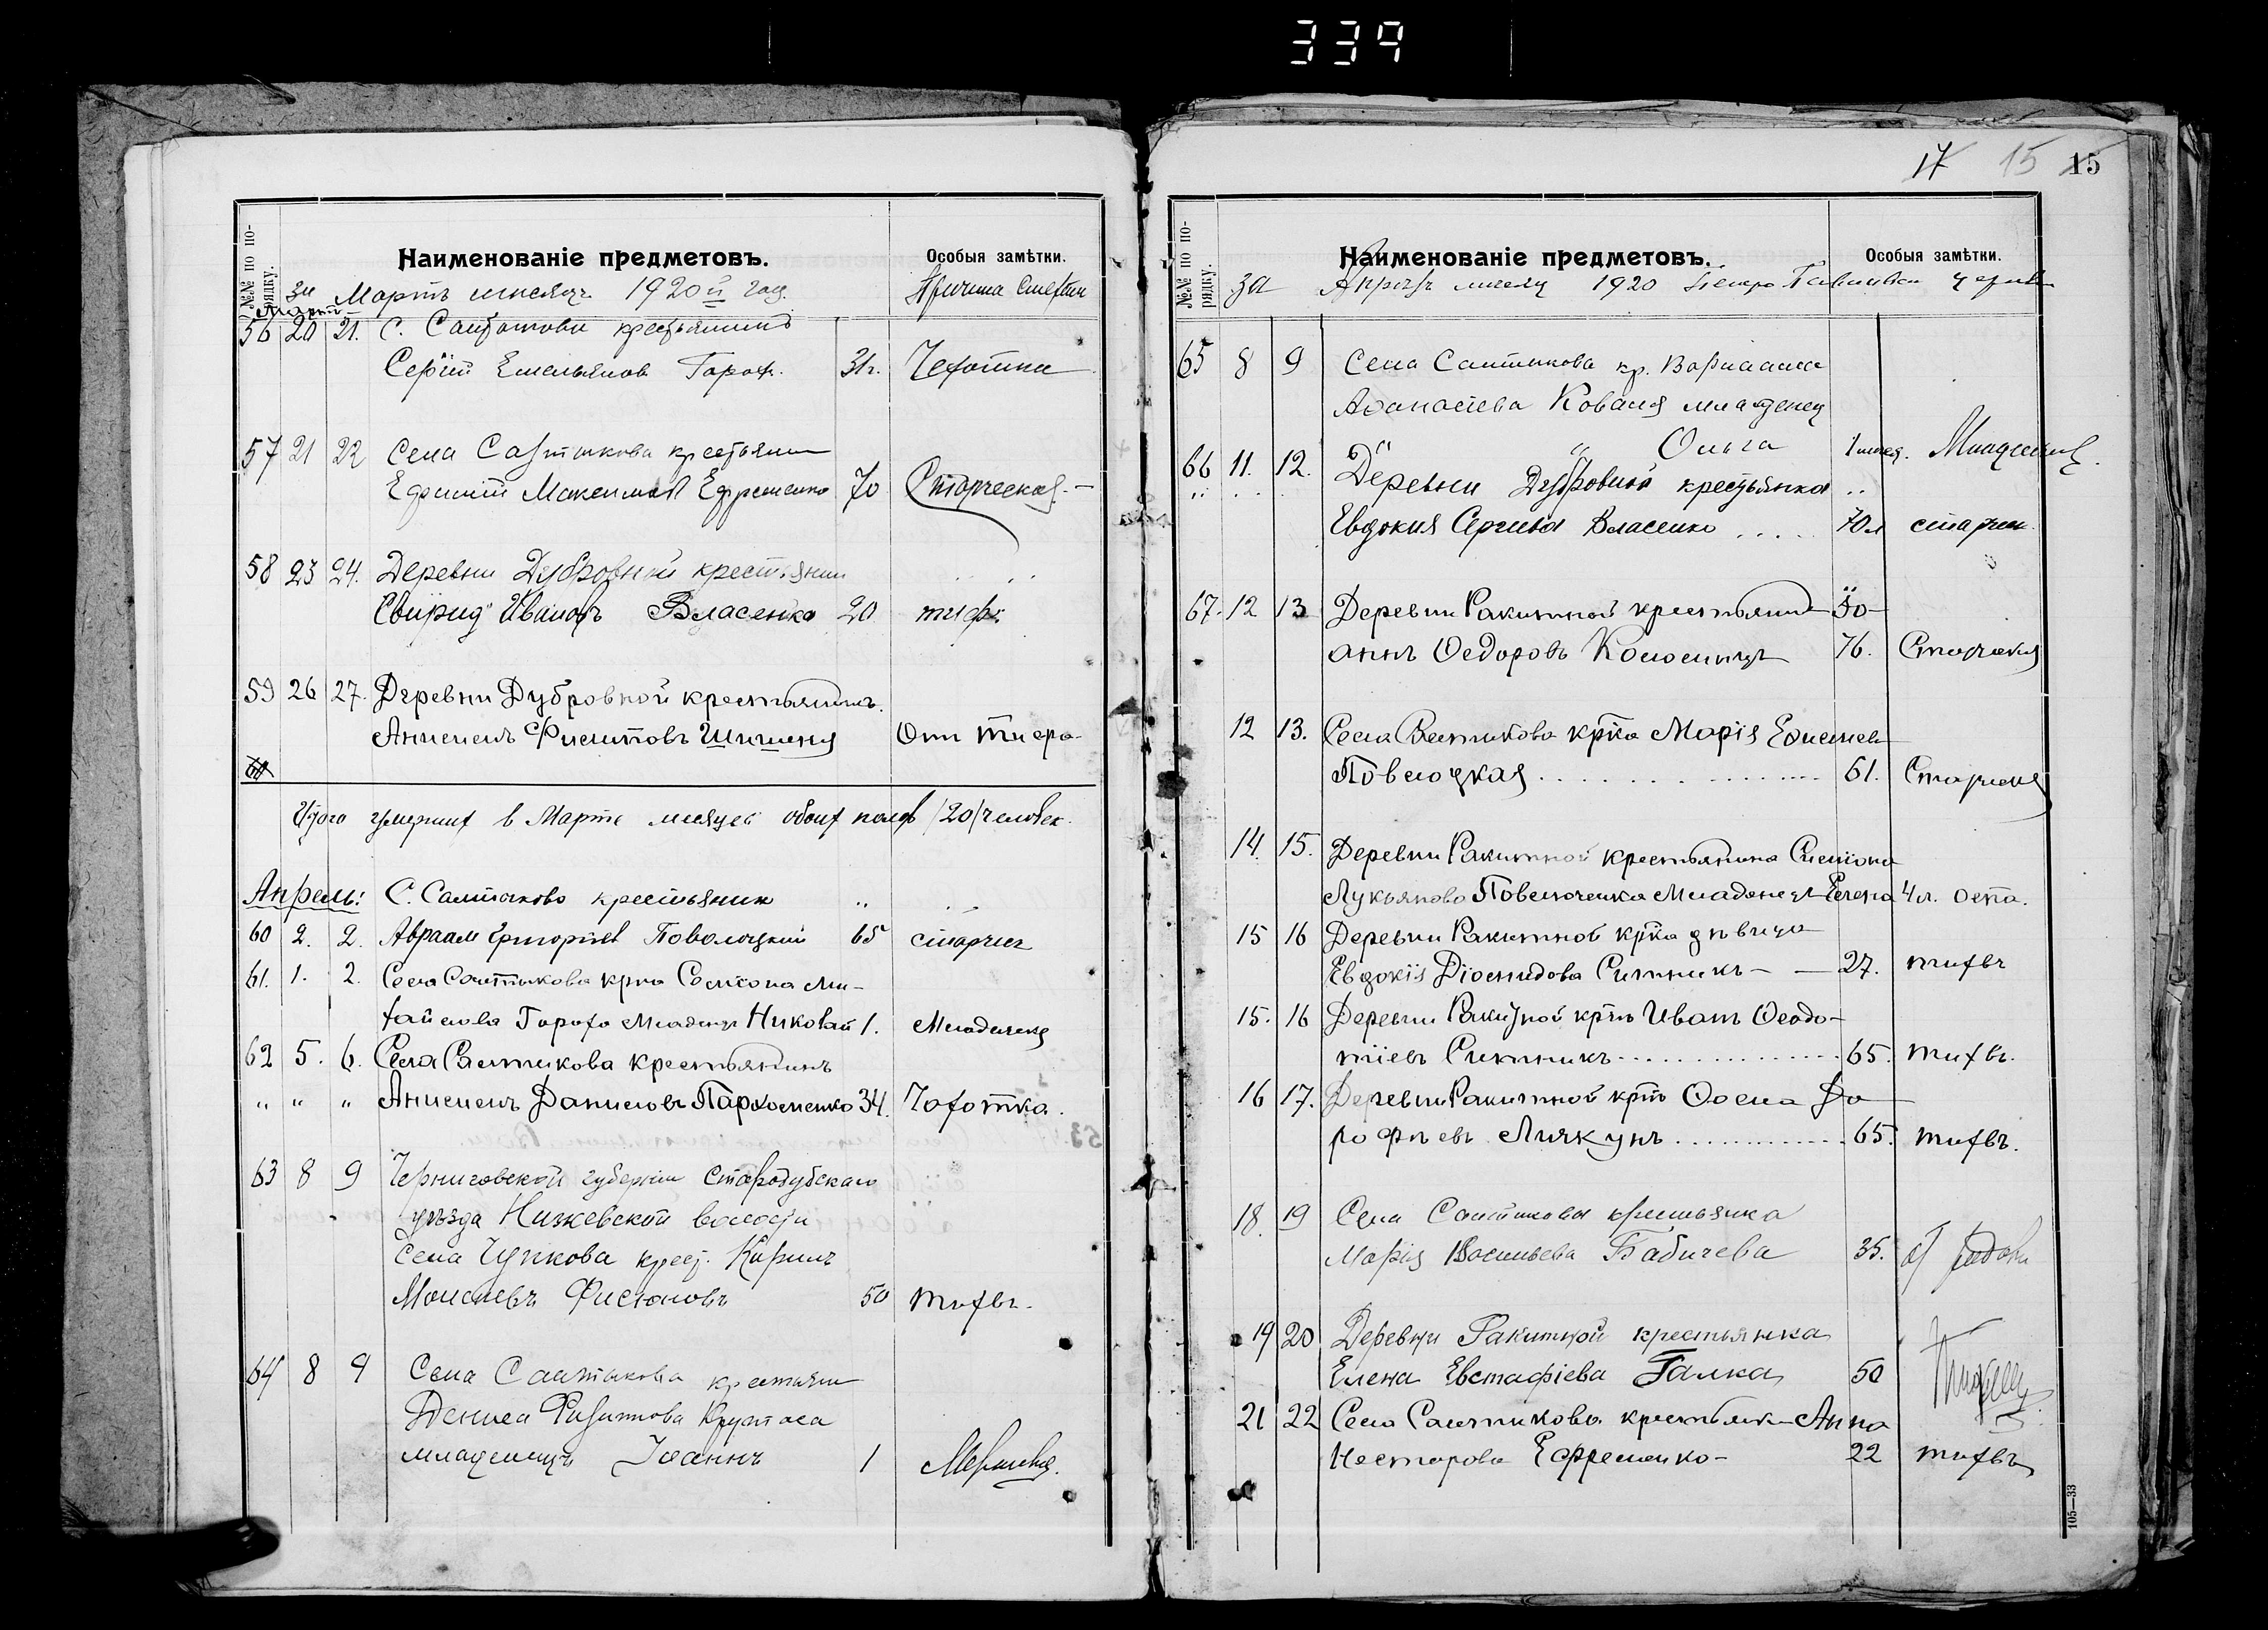 339
№№ по по-
рядку.
Наименованіе предметовъ.
Особыя замѣтки.
за Мартъ мѣсяцъ 1920й год.
Причина Смерти
Мартъ
56 20 21. С. Салтыкова крестьянинъ
Сергій Емельянов Горох. 31г. Чехотки
57 21 22 Села Салтыкова крестьянин
Ефимій Максимов Ефременко 70 Старческая.
58 23 24. Деревни Дубровной крестьянин
Свирид Ивановъ Власенко 20 тиф.
59 26 27. Деревни Дубровной крестьянинъ.
Алексей Филиповъ Шишеня Отъ тифа
60
Итого умерших в Марте месяце обоих полов /20/ человек.
Апрель: С. Салтыково крестьянин
60 2. 2. Авраам Григориев Поволоцкий 65 старчес
61. 1. 2. Села Салтыкова крна Семіона Ми-
хайлова Горохо Младенец Николай 1. Младенска
62 5. 6. Села Салтикова крестьянинъ
„ „ „ Алексей Даниловъ Пархоменко 34. Чахотка.
63 8 9 Черниговской губернии Стародубскаго
уѣзда Нижевской волости
села Чупкова крест. Кирилъ
Моисиевъ Фистоновъ 50 тифъ.
64 8 9 Села Салтыкова крестьян
Дениса Филиппова Крупоса
младенецъ Іоаннъ 1
17 15 15
№№ по по-
рядку.
Наименованіе предметовъ.
Особыя замѣтки.
за Апрѣль месяц 1920 Петро Павловская церковь
65 8 9 Села Салтыкова кр. Варлаама
Афанасіева Коваля младенец
„ „ Ольга 1 мѣся. Младенчес.
66 11. 12. Деревни Дубровной крестьянка
Евдокия Сергиева Власенко . . . . . 70 л старчес.
67. 12 13 Деревни Ракитной крестьянин Іо-
аннъ Федоровъ Коломиец 76. Старческая
12 13. Села Салтикова крка Марія Ефимиева
Поволоцкая . . . . . . . . 61. Старческ
14. 15. Деревни Ракитной крестьянина Симіона
Лукьянова Поволоченка Младенец Елена 4 л. оспа.
15 16 Деревни Ракитной крка дѣвица
Евдокія Діомидова Ситникъ - — 27. тифъ
15. 16 Деревни Ракитной крнъ Иванъ Феодо-
тіевъ Ситникъ . . . . . . . . 65. тифъ.
16 17. Деревни Ракитной крнъ Фома До-
рофѣевъ Лиякунъ . . . . . . . . 65. тифъ.
18. 19 Села Салтыкова крестьянка
Марія Васильева Бабичева 35. от родов
19 20 Деревни Ракитной крестьянка
Елена Евстафіева Галка 50
21 22 Села Салтикова крестьянка Анна
Нестерова Ефременко- 22 тифъ
105—33